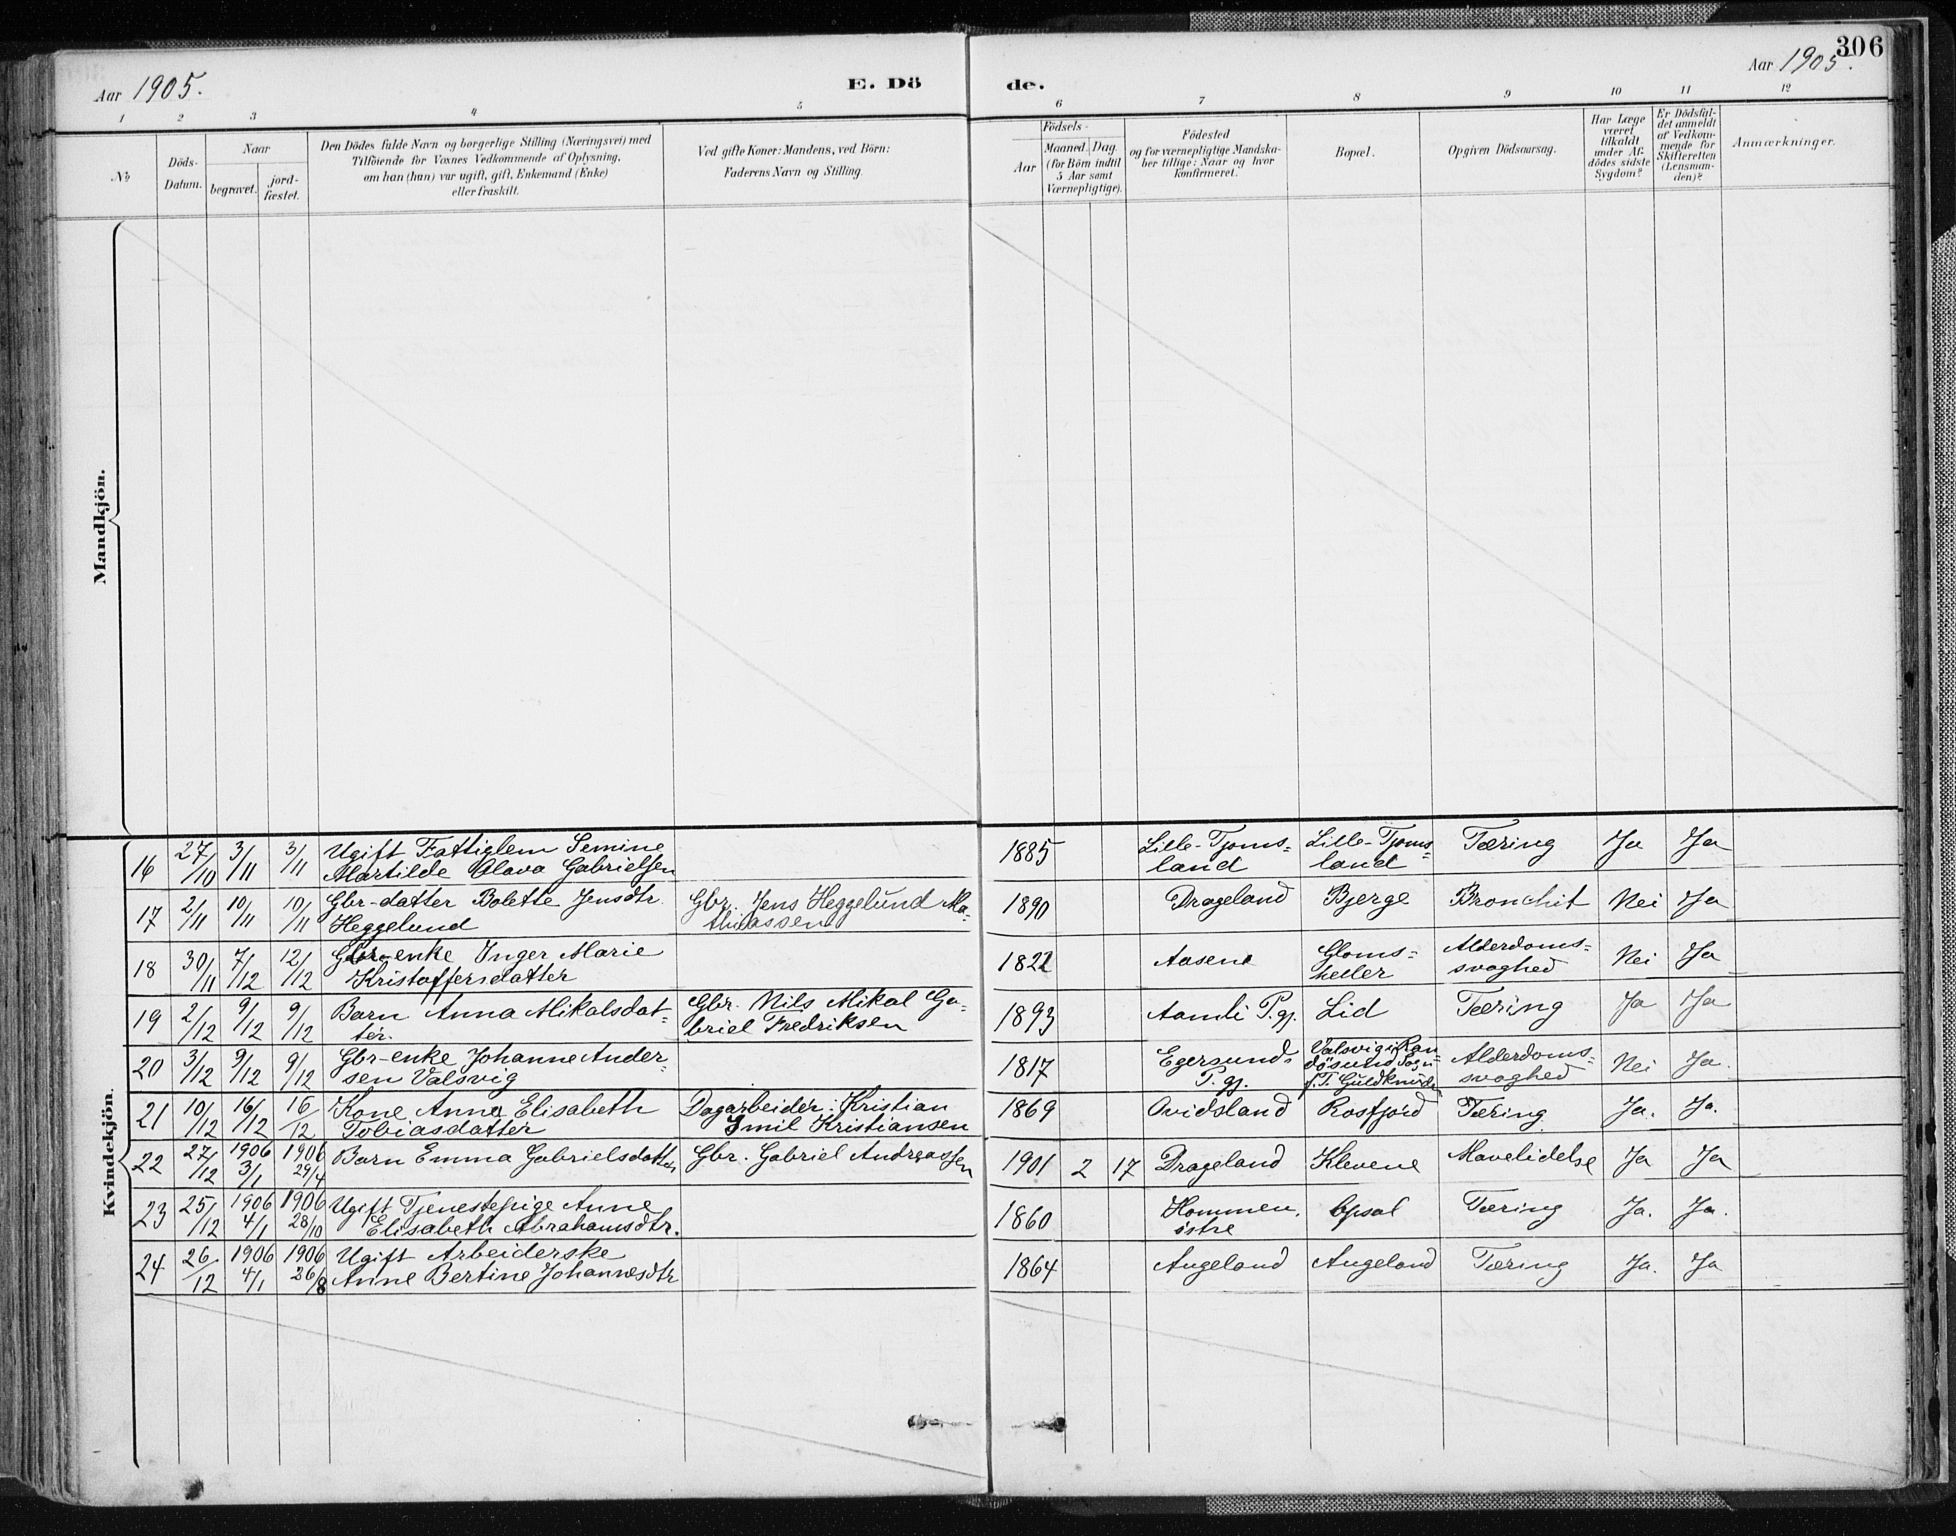 306
Aar 1905.
E. Dö
de.
Aar 1905.
1 2 3 4 5 6 7 8 9 10 11 12
No
Döds-
Datum.
Naar
begravet.
jord-
fæstet.
Den Dödes fulde Navn og borgerlige Stilling (Næringsvei) med
Tilföiende for Voxnes Vedkommende af Oplysning,
om han (hun) var ugift, gift, Enkemand (Enke)
eller fraskilt.
Ved gifte Koner: Mandens, ved Börn:
Faderens Navn og Stilling.
Födsels-
Aar
Maaned.
Dag.
(for Börn indtil
5 Aar samt
Værnepligtige).
Födested
og for værnepligtige Mandska-
ber tillige: Naar og hvor
konfirmeret.
Bopæl.
Opgiven Dödsaarsag.
Har Læge
været
tilkaldt
under Af-
dödes sidste
Sygdom?
Er Dödsfal-
det anmeldt
af Vedkom-
mende for
Skifteretten
(Lensman-
den)?
Anmærkninger.
Mandkjön.
Kvindekjön.
16 27/10 3/11 3/11 Ugift Fattiglem Semine
Martilde Olava Gabrielsen
1885 Lille-Tjoms-
land
Lille-Tjoms-
land
Tæring Ja Ja
17 2/11 10/11 10/11 Gbr-datter Bolette Jensdtr.
Heggelund
Gbr. Jens Heggelund Ma-
thiassen
1890 Drageland Bjerge Bronchit Nei Ja
18 30/11 7/12 12/12 Gbr-enke Inger Marie
Kristoffersdatter
1822 Aasene Gloms-
heller
Alderdoms-
svaghed
Nei Ja
19 2/12 9/12 9/12 Barn Anna Mikalsdat-
ter.
Gbr. Nils Mikal Ga-
briel Fredriksen
1893 Aamli P.gj. Lid Tæring Ja Ja
20 3/12 9/12 9/12 Gbr-enke Johanne Ander-
sen Valsvig
1817 Egersunds
P.gj.
Valsvig i Ran-
dösund Sogn
f.T. Guldknuden
Alderdoms-
svaghed
Nei Ja.
21 10/12 16/12 16/12 Kone Anne Elisabeth
Tobiasdatter
Dagarbeider: Kristian
Emil Kristiansen
1869 Ovidsland Rosfjord Tæring. Ja. Ja.
22 27/12 1906 3/1 1906 29/4 Barn Emma Gabrielsdatter
Gbr. Gabriel Andreassen
1901 2 17 Drageland Klevene Mavelidelse Ja Ja
23 25/12 1906 4/1 1906 28/10 Ugift Tjenestepige Anne
Elisabeth Abrahamsdtr.
1860 Hommen,
östre
Opsal Tæring Ja. Ja.
24 26/12 1906 4/1 1906 26/8 Ugift Arbeiderske
Anne Bertine Johannesdtr
1864 Augeland Augeland Tæring Ja. Ja